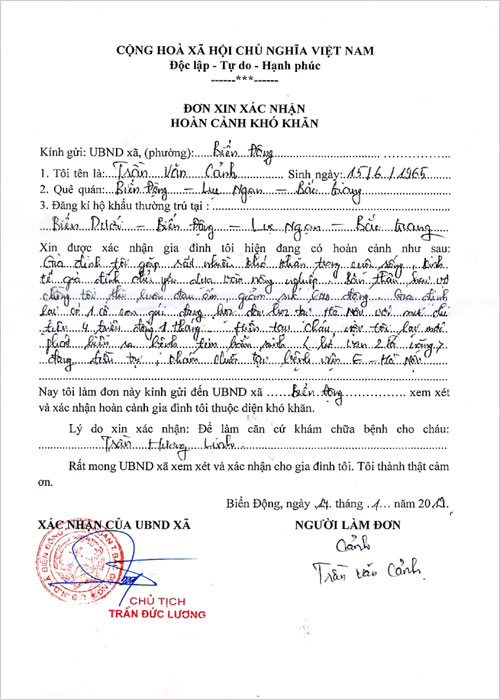 CỘNG HOÀ XÃ HỘI CHỦ NGHĨA VIỆT NAM
Độc lập - Tự do - Hạnh phúc
------***------
ĐƠN XIN XÁC NHẬN
HOÀN CẢNH KHÓ KHĂN
Kính gửi: UBND xã, (phường): Biển Động
1. Tôi tên là: Trần Văn Cảnh Sinh ngày: 15/6/1965
2. Quê quán: Biển Động - Lục Ngạn - Bắc Giang
3. Đăng kí hộ khẩu thường trú tại :
Biển Dưới - Biển Động - Lục Ngạn - Bắc Giang
Xin được xác nhận gia đình tôi hiện đang có hoàn cảnh như sau:
Gia đình tôi gặp rất nhiều khó khăn trong cuộc sống, kinh
tế gia đình chủ yếu dựa vào nông nghiệp. Bản thân hai vợ
chồng tôi thì luôn đau ốm, giảm sức lao động. Gia đình
lại có 1 cô con gái đang học đại học tại Hà Nội với mức chi
tiêu 4 triệu đồng 1 tháng. Hiện tay cháu, việc tôi lại mới
phát hiện ra bệnh tim bẩm sinh
đang điều trị bệnh viện E - Hà Nội
Nay tôi làm đơn này kính gửi đến UBND xã Biển Động xem xét
và xác nhận hoàn cảnh gia đình tôi thuộc diện khó khăn.
Lý do xin xác nhận: Để làm căn cứ khám chữa bệnh cho cháu:
Trần Hương Linh
Rất mong UBND xã xem xét và xác nhận cho gia đình tôi. Tôi thành thật cảm
ơn.
Biển Động, ngày 14 tháng 1 năm 201
XÁC NHẬN CỦA UBND XÃ
NGƯỜI LÀM ĐƠN
Cảnh
Trần Văn Cảnh
CHỦ TỊCH
TRẦN ĐỨC LƯƠNG